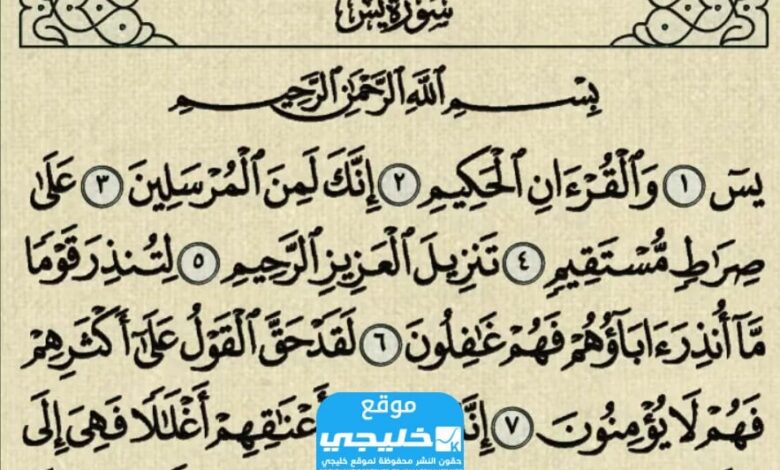 سُورَةُ يسٓ
بِسْمِ ٱللَّهِ ٱلرَّحْمَٰنِ ٱلرَّحِيمِ
يسٓ ١ وَٱلْقُرْءَانِ ٱلْحَكِيمِ ٢ إِنَّكَ لَمِنَ ٱلْمُرْسَلِينَ ٣ عَلَىٰ
صِرَٰطٍ مُّسْتَقِيمٍ ٤ تَنزِيلَ ٱلْعَزِيزِ ٱلرَّحِيمِ ٥ لِتُنذِرَ قَوْمًا
مَّآ أُنذِرَ ءَابَآؤُهُمْ فَهُمْ غَٰفِلُونَ ٦ لَقَدْ حَقَّ ٱلْقَوْلُ عَلَىٰٓ أَكْثَرِهِمْ
فَهُمْ لَا يُؤْمِنُونَ ٧ أَعْنَٰقِهِمْ أَغْلَٰلًا فَهِىَ إِلَى
موقع
خليجي
حقون النشر محفوظة لموقع خليجي